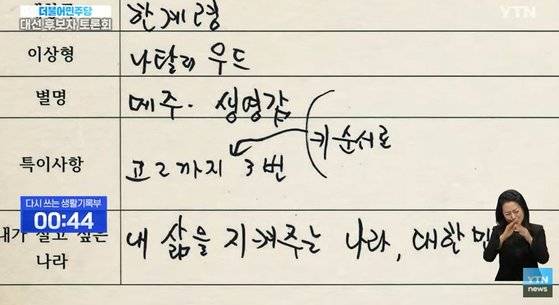 더불어민주당
대선 후보자 토론회
YTN
한계령
이상형 나탈리 우드
별명 메주. 생영감
키 순서로
특이사항 고2까지 3번
다시 쓰는 생활기록부
00:44
내가 살고 싶은 나라 내 삶을 지켜주는 나라, 대한민
YTN
news